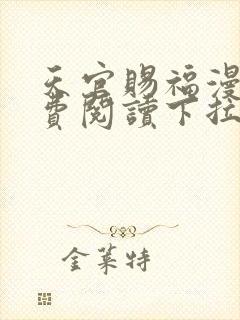 天官賜福漫
費閱讀下拉
金萊特